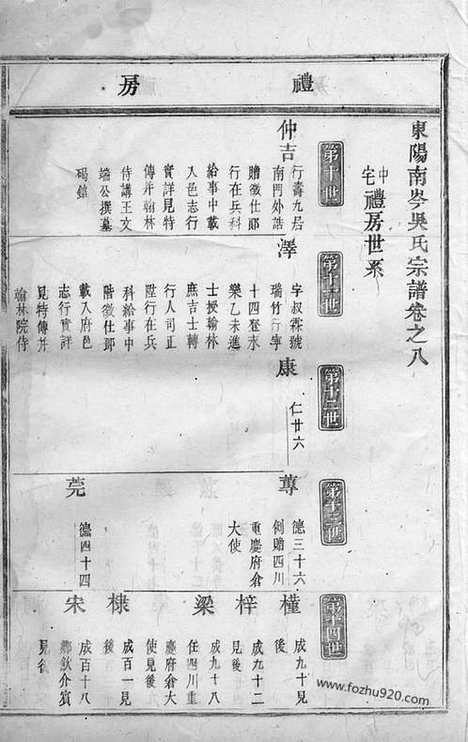 禮房
東陽南岑吳氏宗譜卷之八
中宅禮房世系
第十世
第十一世
第十二世
第十三世
第十四世
仲吉
行壽九居
南門外誥
贈徵仕郎
行在兵科
給事中載
入邑志行
實詳見特
傳幷翰林
侍講王文
端公撰墓
碣銘
澤
字叔霖號
瑞竹行寧
十四登永
樂乙未進
士授翰林
庶吉士轉
行人司正
陞行在兵
科給事中
階徵仕郎
載入府邑
志行實詳
見特傳幷
翰林院侍
康
仁廿六
尊
德三十六
例贈四川
重慶府倉
大使
莞
德四十四
槿
成九十見
後
梓
成九十二
見後
梁
成九十八
任四川重
慶府倉大
使見後
棣
成百一見
後
宋
成百十八
鄉飲介賓
見後
www.fozhu920.com